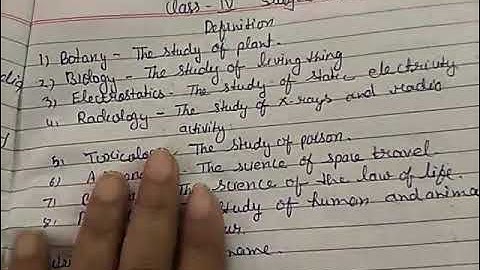 Class - IV
Definition
1) Botany - The study of plant.
2) Biology - The study of living thing
3) Electrostatics - The study of static electricity
4) Radiology - The study of x-rays and radio
activity.
5) Toxicology - The study of poison.
6) A The science of space travel
7) The science of the law of life.
8) study of human and anima
name.